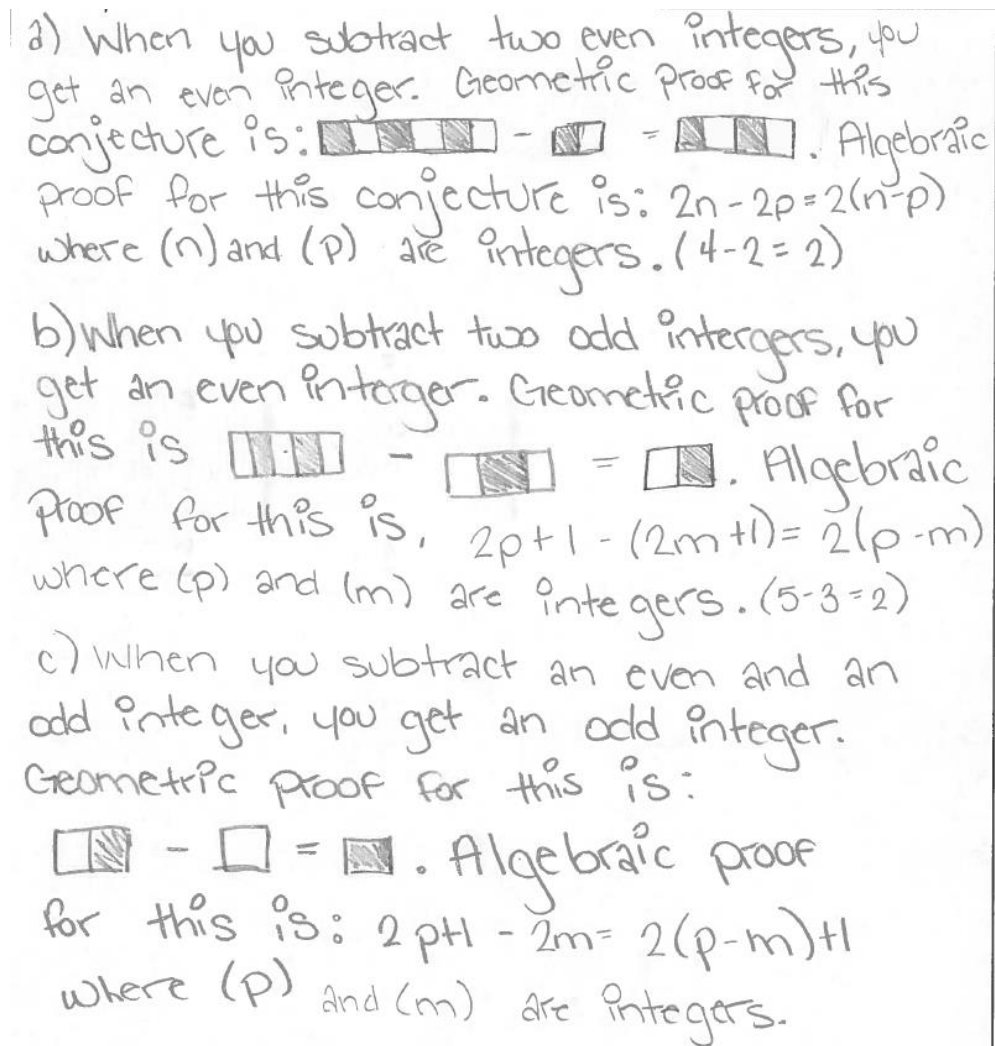 a) When you subtract two even integers, you
get an even integer. Geometric proof for this
conjecture is: - = . Algebraic
proof for this conjecture is: 2n - 2p = 2(n-p)
where (n) and (p) are integers. (4-2=2)
b) When you subtract two odd intergers, you
get an even interger. Geometric proof for
this is - = . Algebraic
proof for this is, 2p+1 - (2m+1) = 2(p-m)
where (p) and (m) are integers. (5-3=2)
c) When you subtract an even and an
odd integer, you get an odd integer.
Geometric proof for this is:
- = . Algebraic proof
for this is: 2p+1 - 2m = 2(p-m)+1
where (p) and (m) are integers.